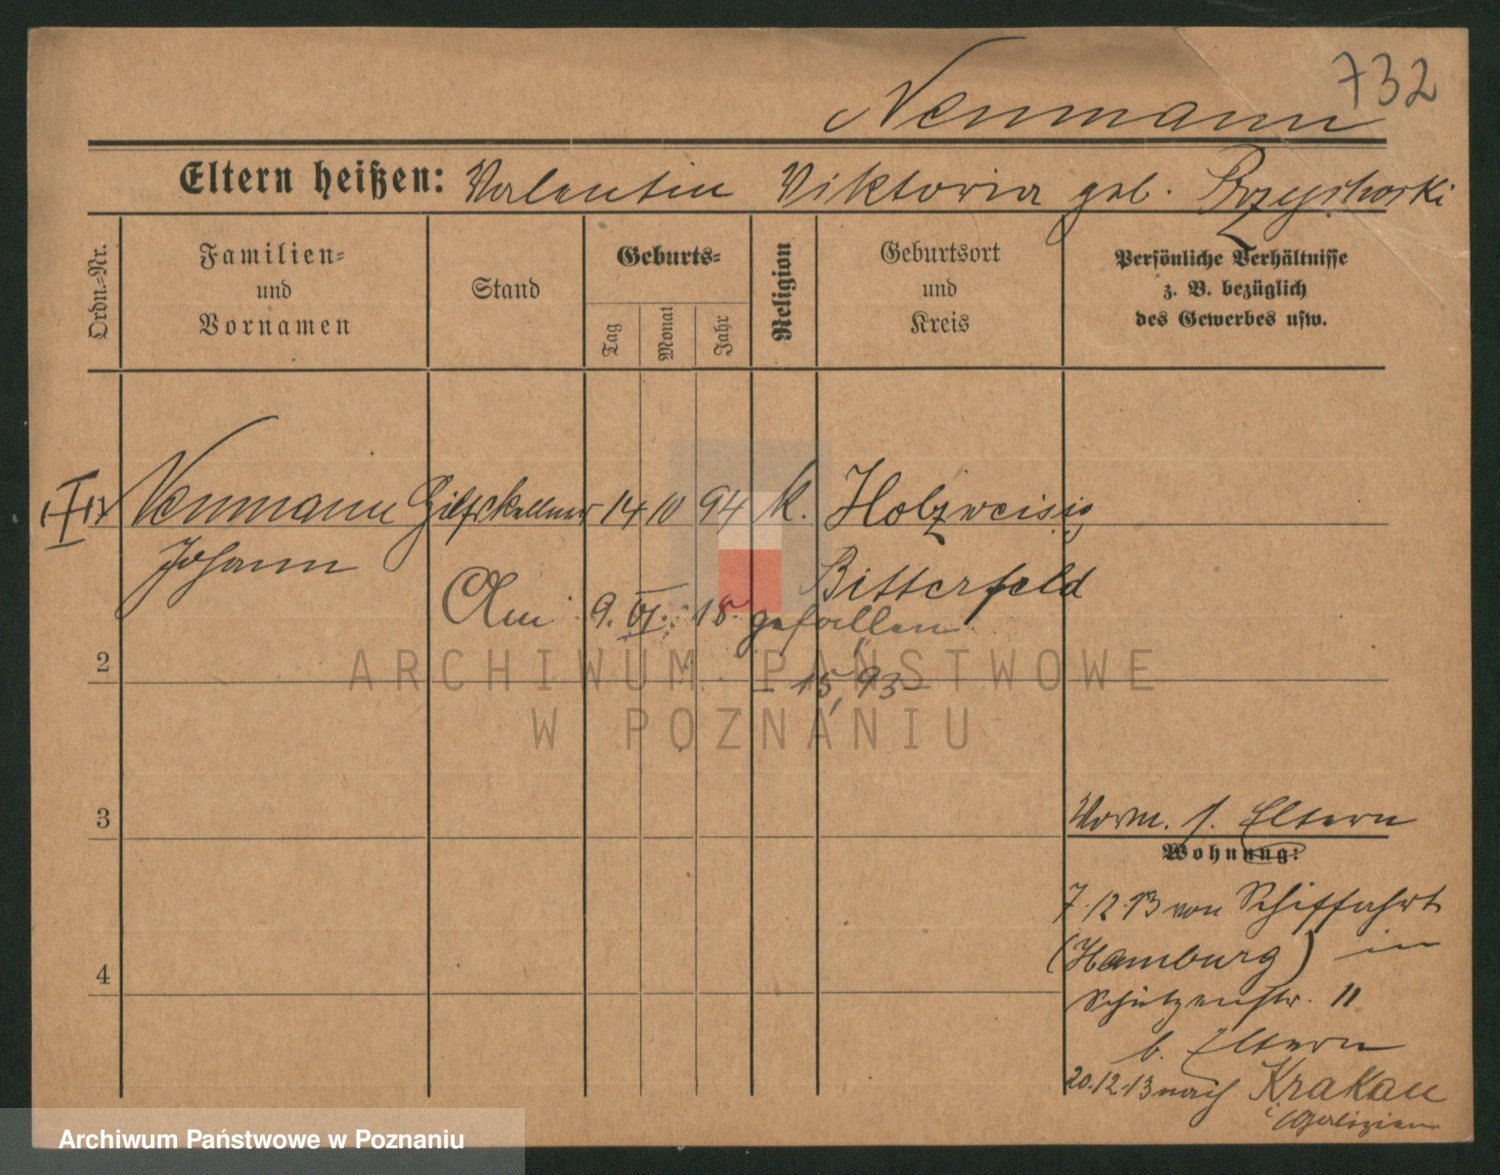 732
Neumann
Eltern heißen: Valentin Viktoria geb.
Ordn.-Nr.
Familien-
und
Vornamen
Stand
Geburts-
Tag
Monat
Jahr
Religion
Geburtsort
und
Kreis
Persönliche Verhältnisse
z. B. bezüglich
des Gewerbes usw.
Neumann Hilfskellner 14 10 94 k. Holzweisig
Johann
Bitterfeld
Am 9. VI. 18 gefallen
15, 93
2
3
4
Vorm. s. Eltern
Wohnung:
7.12.13 von Schiffahrt
(Hamburg) in
Schützenstr. 11
b. Eltern
20.12.13 nach Krakau
Galizien
ARCHIWUM PAŃSTWOWE
W POZNANIU
Archiwum Państwowe w Poznaniu